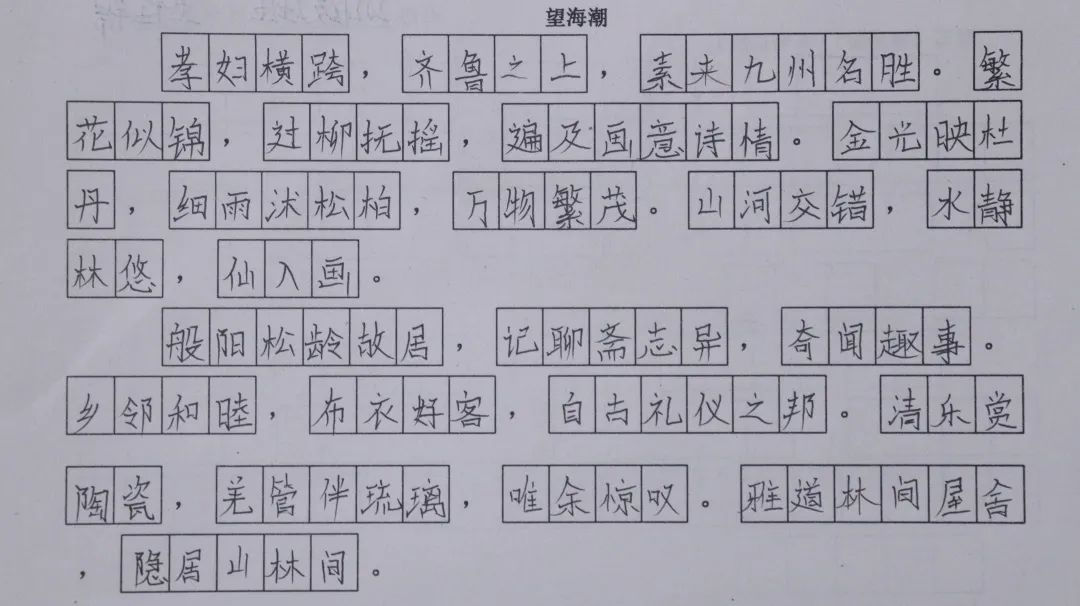 望海潮
孝妇横跨，齐鲁之上，素来九州名胜。繁
花似锦，过柳抚摇，遍及画意诗情。金光映杜
丹，细雨沭松柏，万物繁茂。山河交错，水静
林悠，仙入画。
般阳松龄故居，记聊斋志异，奇闻趣事。
乡邻和睦，布衣好客，自古礼仪之邦。清乐赏
陶瓷，羌管伴琉璃，唯余惊叹。雅道林间屋舍
，隐居山林间。